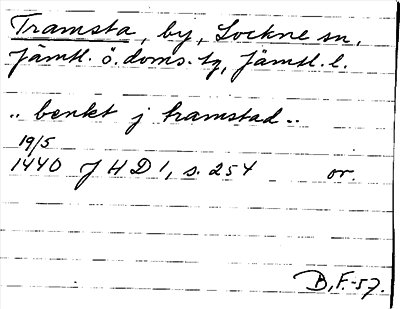 Tramsta, by, Lockne sn,
Jämtl. ö. doms. tg, Jämtl. l.
.. benkt j tramstad ..
19/5
1440 JHD 1, s. 254 or.
B.F.-57.